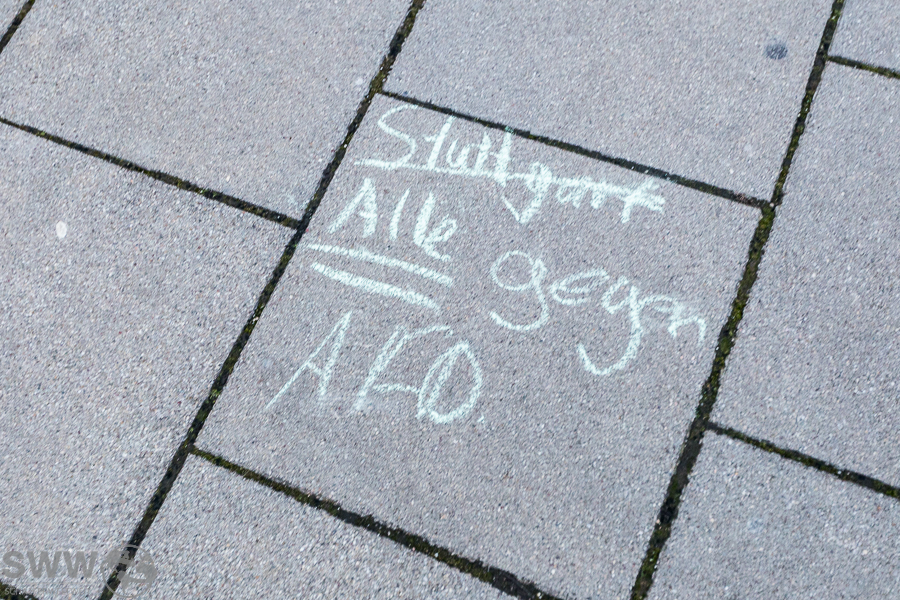 Stuttgart
Alle gegen
AFD
SWW